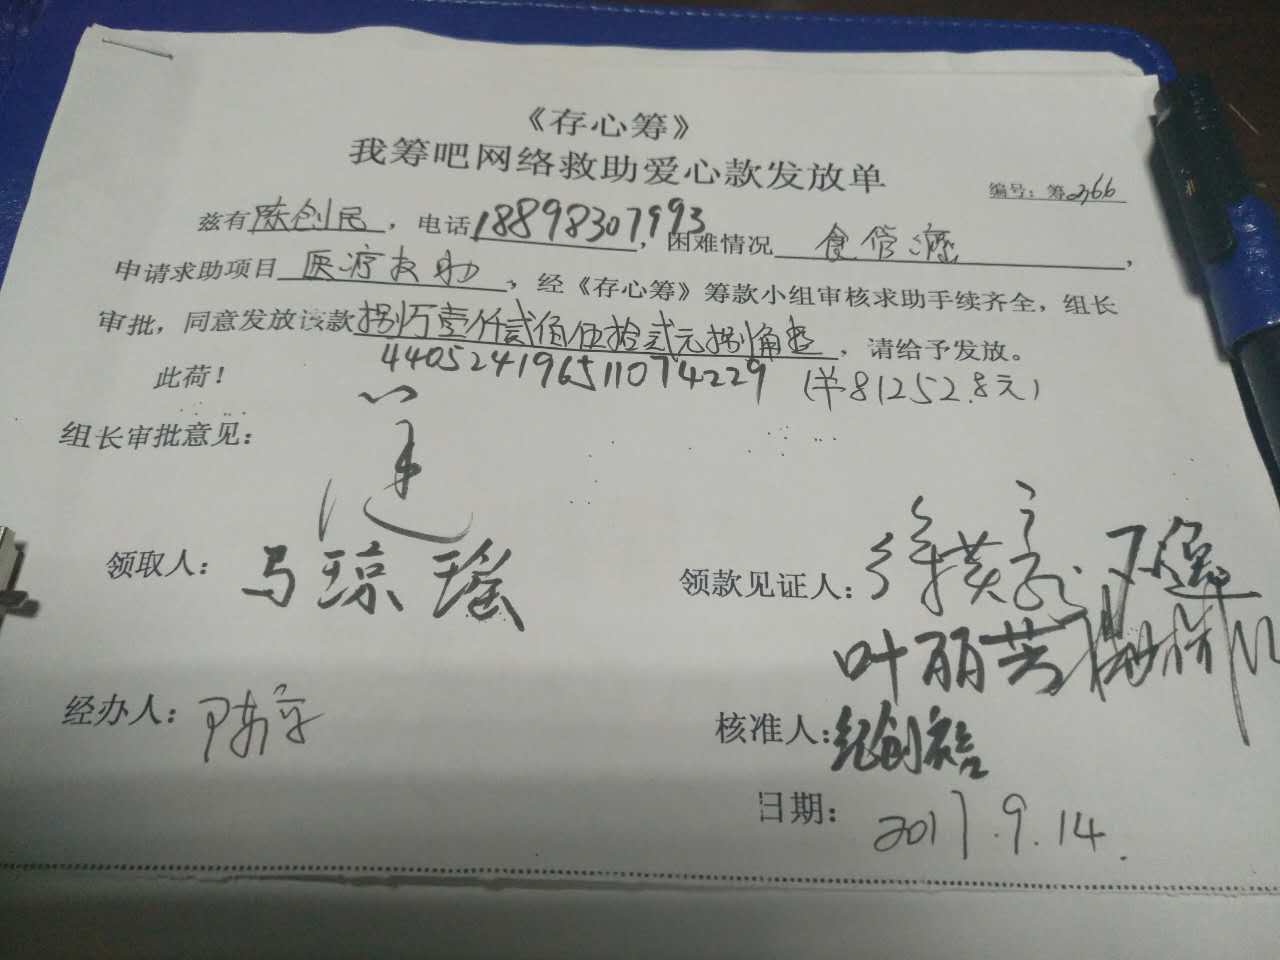 《存心筹》
我筹吧网络救助爱心款发放单
编号：筹2766
兹有陈创民，电话18898307993，困难情况食管癌，
申请求助项目医疗救助，经《存心筹》筹款小组审核求助手续齐全，组长
审批，同意发放该款捌万壹仟贰佰伍拾贰元捌角整，请给予发放。
440524196511074229 (羊81252.8元)
此荷！
组长审批意见：
领取人：马琼瑶 领款见证人：
叶丽芸
经办人： 核准人：纪创裕
日期：2017.9.14.